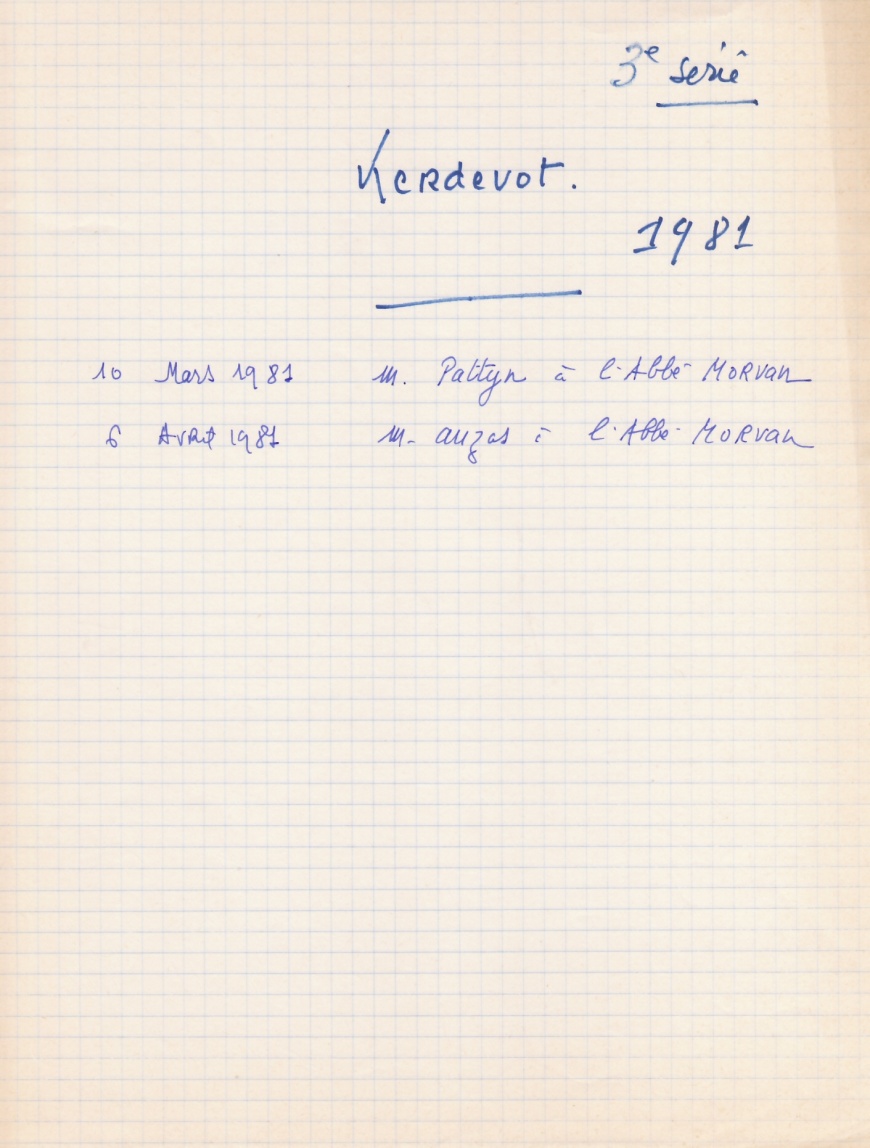 3e serie
Kerdevot.
1981
10 Mars 1981 M. Pattyn à l'Abbé MORVAN
6 Avril 1981 M. Auzas à l'Abbé MORVAN